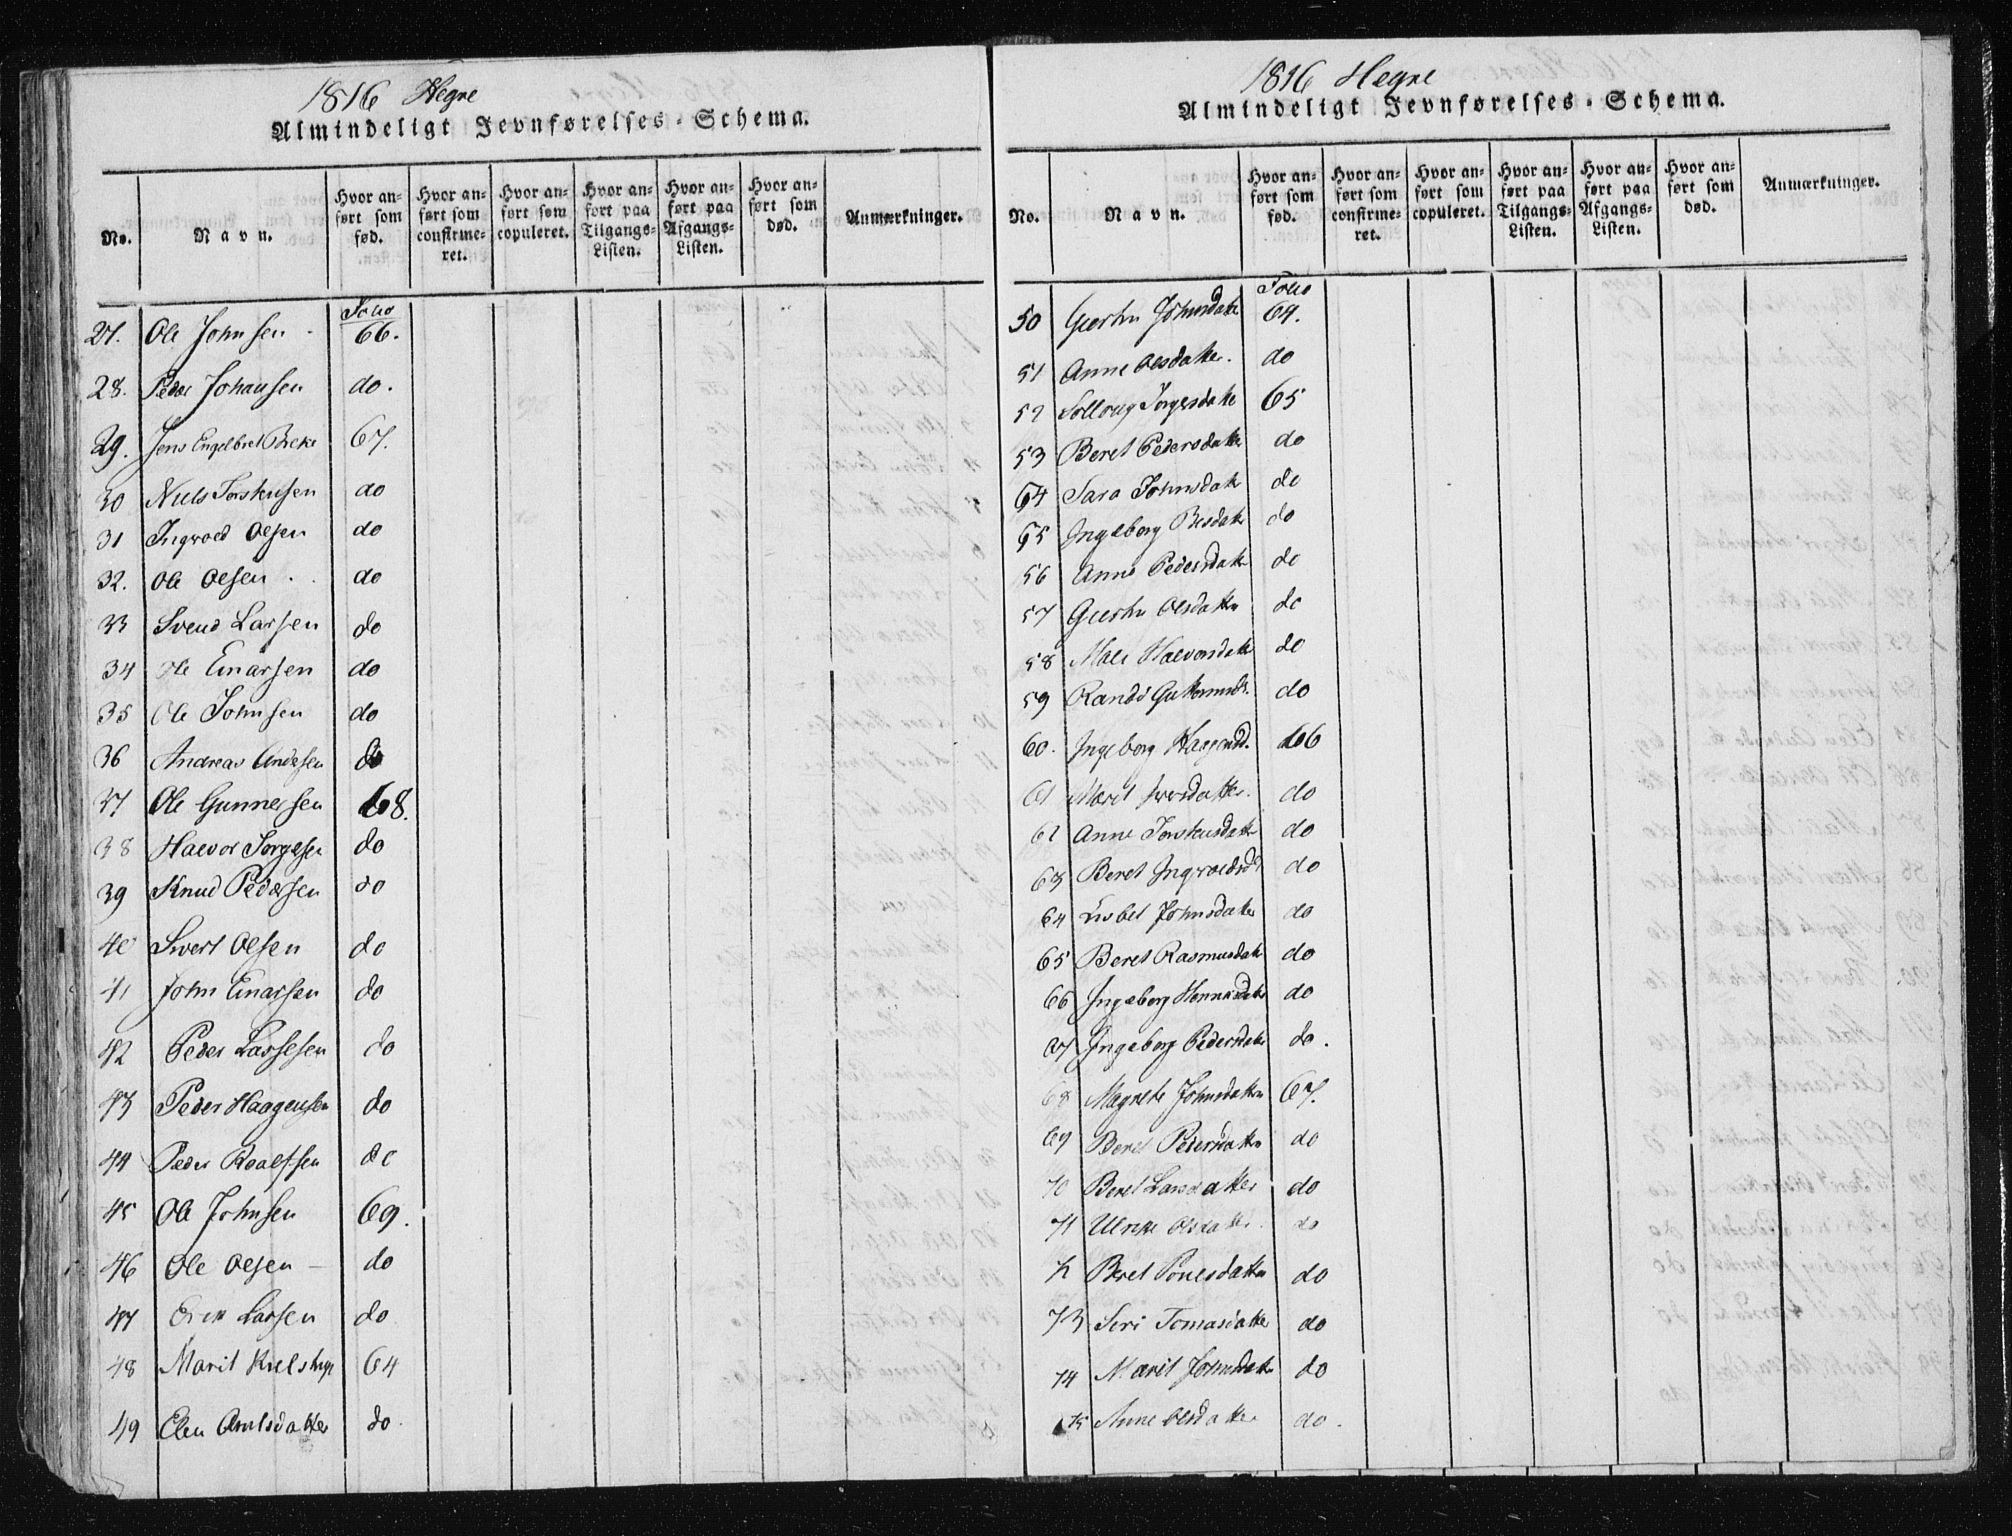 1816 Hegne
Almindeligt Jevnførelses-Schema.
No. Navn. Hvor anført som fød. Hvor anført som confirmeret. Hvor anført som copuleret. Hvor anført paa Tilgangs-Listen. Hvor anført paa Afgangs-Listen. Hvor anført som død. Anmærkninger.
Folio
27. Ole Johnsen 66.
28. Peder Johansen do.
29. Jens Engelbret 67.
30 Niels Torstensen do
31 Ingvold Olsen do
32. Ole Olsen do
33 Svend Larsen do
34 Ole Einarsen do
35 Ole Johnsen do
36 Andreas Andersen do
37 Ole Gunnersen 68.
38 Halvor Jørgesen do
39 Knud Pedersen do
40 Sivert Olsen do
41 John Einarsen do
42 Peder Lassesen do
43 Peder Haagensen do
44 Peder Roalfsen do
45 Ole Johnsen 69.
46 Ole Olsen – do
47 Erik Larsen do
48 Marit 64
49 Elen Arntsdatter do
1816 Hegne
Almindeligt Jevnførelses-Schema.
No. Navn. Hvor anført som fød. Hvor anført som confirmeret. Hvor anført som copuleret. Hvor anført paa Tilgangs-Listen. Hvor anført paa Afgangs-Listen. Hvor anført som død. Anmærkninger.
Folio
50 Johnsdatter 64.
51 Anne Olsdatter. do
52 Jørgesdatte 65
53 Beret Pedersdatter do
54 Sara Johnsdatt do
55 Ingeborg do
56 Anne Pedersdatt do
57 Olsdatter do
58 Halvorsdatt do
59 Randi do
60. Ingeborg Haagensd. 66
61 Marit Iversdatter. do
62 Anne Torstensdatt do
63 Beret Ingvoldsd do
64 Lisbet Johnsdatter do
65 Beret Rasmusdatt do
66 Ingeborg do
67 Ingeborg Pedersdatter do.
68 Magrete Johnsdatter 67.
69 Beret Pedersdatter do
70 Beret Larsdatter do
71 Ulrike Olsdatter do
72 Beret Ponesdatter do
73 Siri Tomasdatter do
74 Marit Johnsdatt do
75 Anne Olsdatter do.